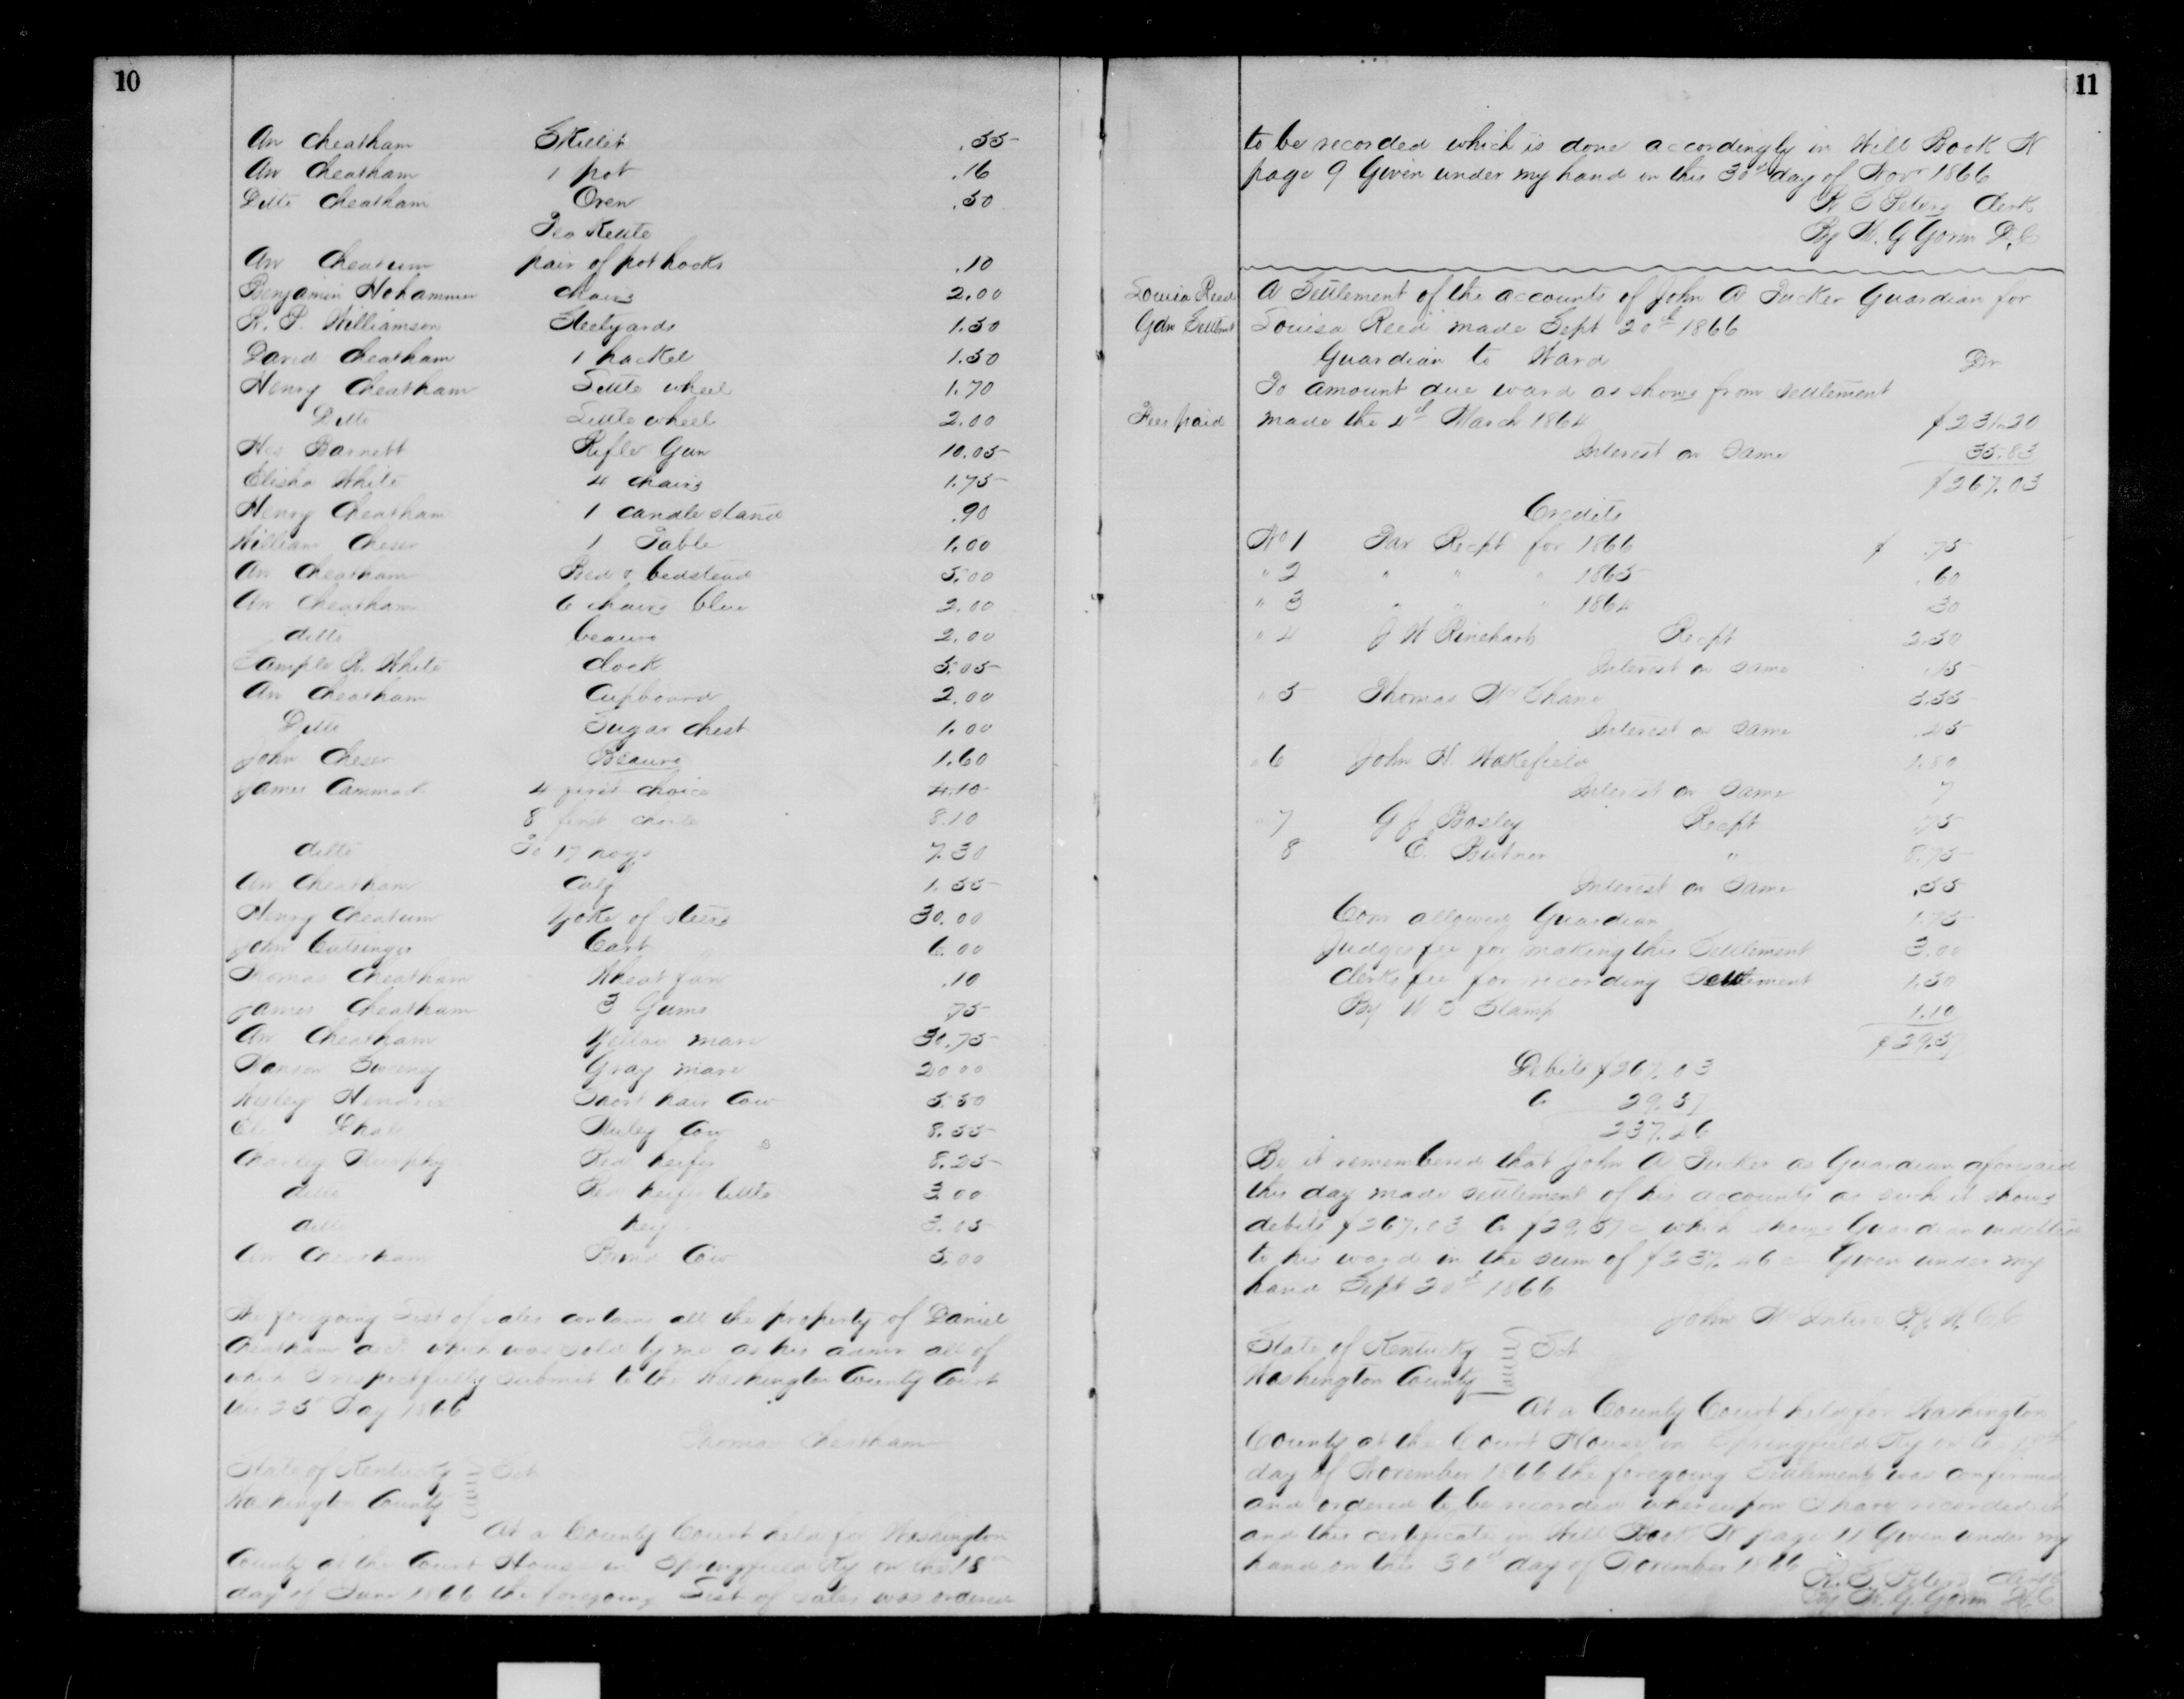 10
An Cheatham Skillet .55
An Cheatham 1 pot .16
Ditto Cheatham Oven .50
Tea Kettle
An Cheatum pair of pot hooks .10
Benjamin Hohammer chairs 2.00
R. P. Williamson Steelyards 1.50
David Cheatham 1 hackel 1.50
Henry Cheatham Little wheel 1.70
Ditto Little wheel 2.00
Barnett Rifle Gun 10.05
Elisha White 4 chairs 1.75
Henry Cheatham 1 candle stand .90
William Cheser 1 Table 1.00
An Cheatham Bed & bedstead 5.00
An Cheatham 6 chairs blue 2.00
ditto beauro 2.00
Sample R. White clock 5.05
An Cheatham Cupboard 2.00
Ditto Sugar chest 1.00
John Cheser Beauro 1.60
James Cammack 4 first choice 4.10
8 first choice 8.10
ditto To 17 hogs 7.30
An Cheatham Calf 1.55
Henry Cheatum Yoke of steers 30.00
John Cutsinger Cart 6.00
Thomas Cheatham Wheat fan .10
James Cheatham 3 Gums .75
An Cheatham Yellow mare 30.75
Sweeny Gray mare 20.00
Wesley Hendrix Short hair Cow 5.50
Muley Cow 8.55
Charley Murphy Red heifer 8.25
ditto Red heifer little 3.00
ditto heifer 3.05
An Cheatham Cow 5.00
The foregoing List of sales contains all the property of Daniel
Cheatham decd which was sold by me as his admr all of
which I respectfully submit to the Washington County Court
this 25 Day 1866
Thomas Cheatham
State of Kentucky } Sct
Washington County
At a County Court held for Washington
County at the Court House in Springfield Ky on the 18th
day of June 1866 the foregoing List of sales was ordered
11
to be recorded which is done accordingly in Will Book N
page 9 Given under my hand on this 30th day of Novr 1866
Clerk
By W. G Gorin D.C
Louisa Reed
Gdn Settlmt
A Settlement of the accounts of John A Tucker Guardian for
Louisa Reed made Sept 20th 1866
Guardian to Ward Dr
To amount due ward as shows from settlement
Fees paid
made the 4th March 1864 $231.20
Interest on Same 35.83
$267.03
Credits
No 1 Tax Recpt for 1866 $ .75
" 2 " " " 1865 .60
" 3 " " " 1864 .30
" 4 J W Rinehart Recpt 2.50
Interest on same .15
" 5 Thomas 5.55
Interest on same .45
" 6 John H. Wakefield 1.80
Interest on same 7
" 7 G J Bosley Recpt .75
8 E. Butner " 8.75
Interest on same .55
Com allowed Guardian 1.75
Judges fee for making this Settlement 3.00
Clerks fee for recording Settlement 1.50
By U S Stamp 1.10
$29.57
Debits $267.03
C 29.57
237.46
Be it remembered that John A Tucker as Guardian aforesaid
this day made settlement of his accounts as such it shows
debits $267.03 Cr $29.57 c which shows Guardian indebted
to his ward in the sum of $237.46 c Given under my
hand Sept 20th 1866
John
State of Kentucky } Sct
Washington County
At a County Court held for Washington
County at the Court House in Springfield Ky on the
day of November 1866 the foregoing Settlement was confirmed
and ordered to be recorded whereupon I have recorded it
and this certificate in Will Book N page 11 Given under my
hand on this 30th day of November 1866
Clerk
By W. G. Gorin D.C